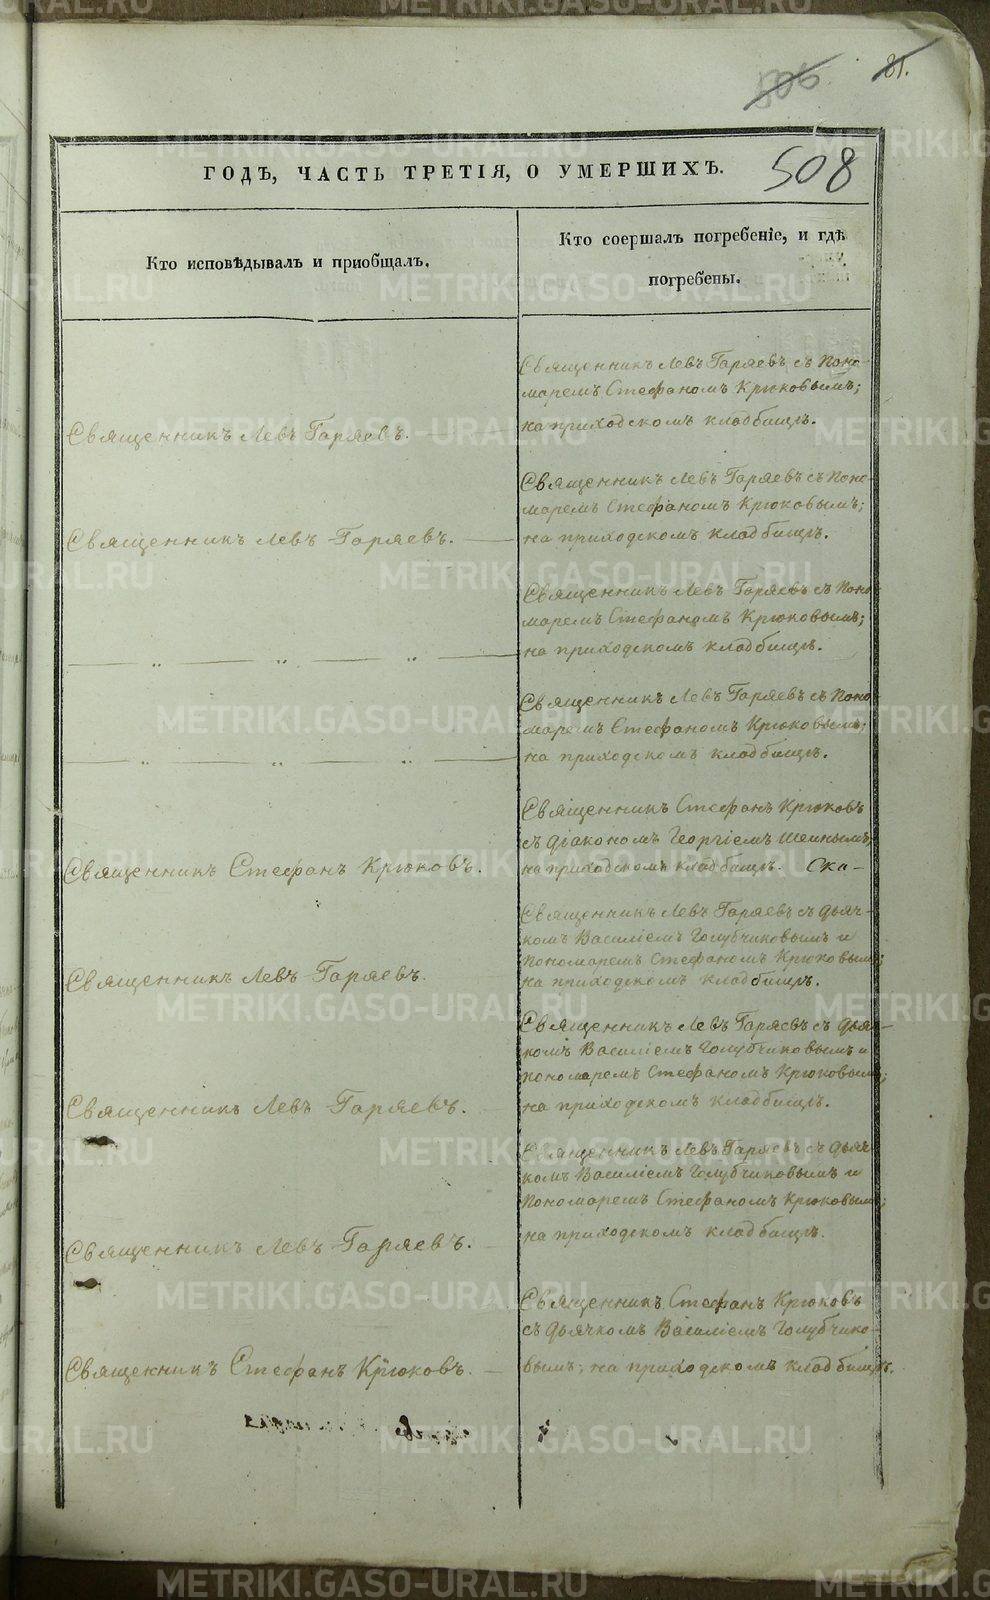 506
81.
508
ГОДѢ, ЧАСТЬ ТРЕТІЯ, О УМЕРШИХЪ.
Кто исповѣдывалъ и пріобщалъ.
Кто соершалъ погребеніе, и гдѣ
погребены.
Священникъ Левъ Гаряевъ съ Поно-
маремъ Стефаномъ Крюковымъ;
на приходскомъ кладбищѣ.
Священникъ Левъ Гаряевъ.
Священникъ Левъ Гаряевъ съ Поно-
маремъ Стефаномъ Крюковымъ;
на приходскомъ кладбищѣ.
Священникъ Левъ Гаряевъ.
Священникъ Левъ Гаряевъ съ Поно-
маремъ Стефаномъ Крюковымъ;
на приходскомъ кладбищѣ.
— „ — „ — „ —
Священникъ Левъ Гаряевъ съ Поно-
маремъ Стефаномъ Крюковымъ;
на приходскомъ кладбищѣ.
— „ — „ — „ —
Священникъ Стефанъ Крюковъ
съ Діакономъ Георгіемъ
на приходскомъ кладбищѣ. Ска-
Священникъ Стефанъ Крюковъ.
Священникъ Левъ Гаряевъ съ Дьяч-
комъ Василіемъ Голубчиковымъ и
Пономаремъ Стефаномъ Крюковымъ;
на приходскомъ кладбищѣ.
Священникъ Левъ Гаряевъ.
Священникъ Левъ Гаряевъ съ Дьяч-
комъ Василіемъ Голубчиковымъ и
пономаремъ Стефаномъ Крюковымъ;
на приходскомъ кладбищѣ.
Священникъ Левъ Гаряевъ.
Священникъ Левъ Гаряевъ съ Дьяч-
комъ Василіемъ Голубчиковымъ и
Пономаремъ Стефаномъ Крюковымъ;
на приходскомъ кладбищѣ.
Священникъ Левъ Гаряевъ.
Священникъ Стефанъ Крюковъ
съ Дьячкомъ Василіемъ Голубчико-
вымъ; на приходскомъ кладбищѣ.
Священникъ Стефанъ Крюковъ.
METRIKI.GASO-URAL.RU